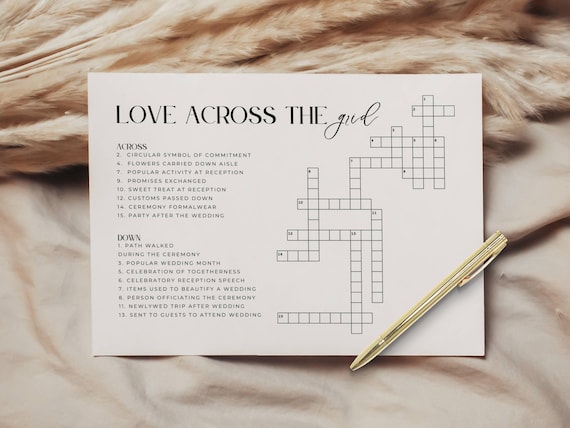 LOVE ACROSS THE grid
ACROSS
2. CIRCULAR SYMBOL OF COMMITMENT
4. FLOWERS CARRIED DOWN AISLE
7. POPULAR ACTIVITY AT RECEPTION
9. PROMISES EXCHANGED
10. SWEET TREAT AT RECEPTION
12. CUSTOMS PASSED DOWN
14. CEREMONY FORMALWEAR
15. PARTY AFTER THE WEDDING
DOWN
1. PATH WALKED
DURING THE CEREMONY
3. POPULAR WEDDING MONTH
5. CELEBRATION OF TOGETHERNESS
6. CELEBRATORY RECEPTION SPEECH
7. ITEMS USED TO BEAUTIFY A WEDDING
8. PERSON OFFICIATING THE CEREMONY
11. NEWLYWED TRIP AFTER WEDDING
13. SENT TO GUESTS TO ATTEND WEDDING